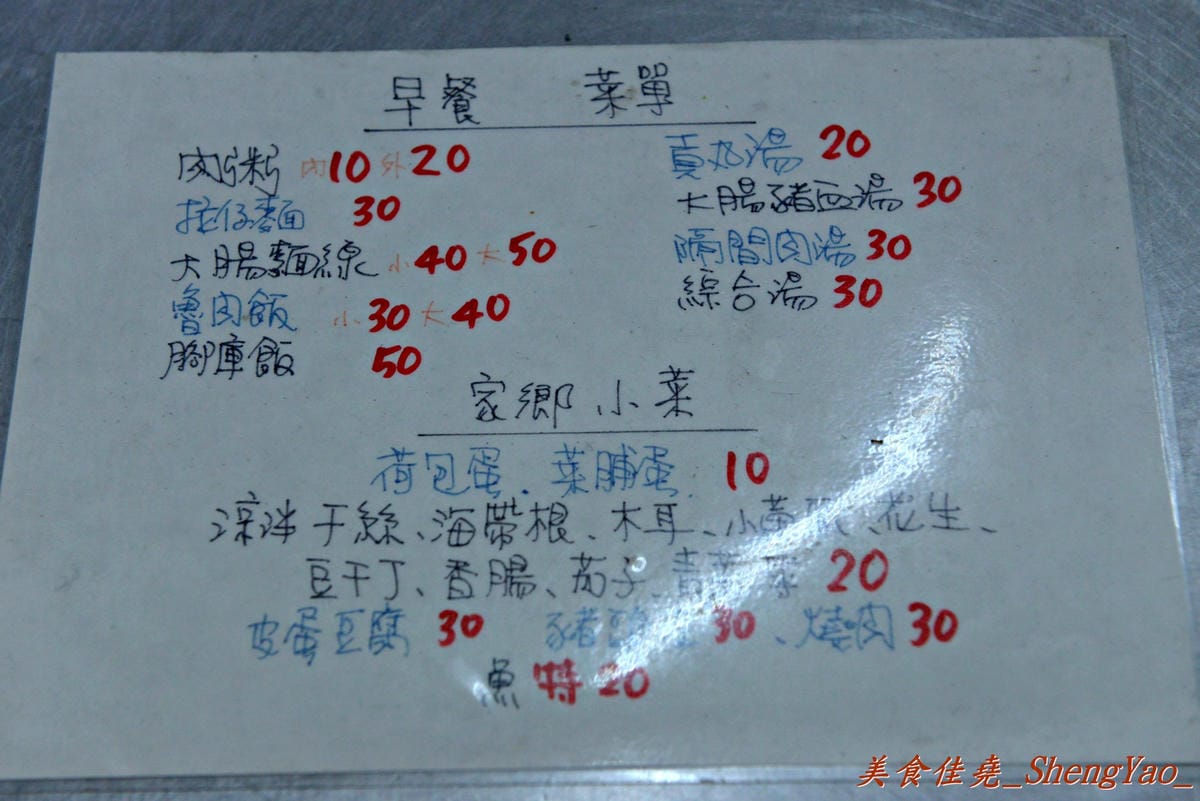 早餐 菜單
肉粥 內10 外20
担仔麵 30
大腸麵線 小40 大50
魯肉飯 小30 大40
腳庫飯 50
貢丸湯 20
大腸豬血湯 30
隔間肉湯 30
綜合湯 30
家鄉小菜
荷包蛋.菜脯蛋. 10
涼拌干絲、海帶根、木耳、小黃瓜、花生、
豆干丁、香腸、茄子、青菜 20
皮蛋豆腐 30 豬 30、燒肉 30
魚 特 20
美食佳堯_ShengYao_